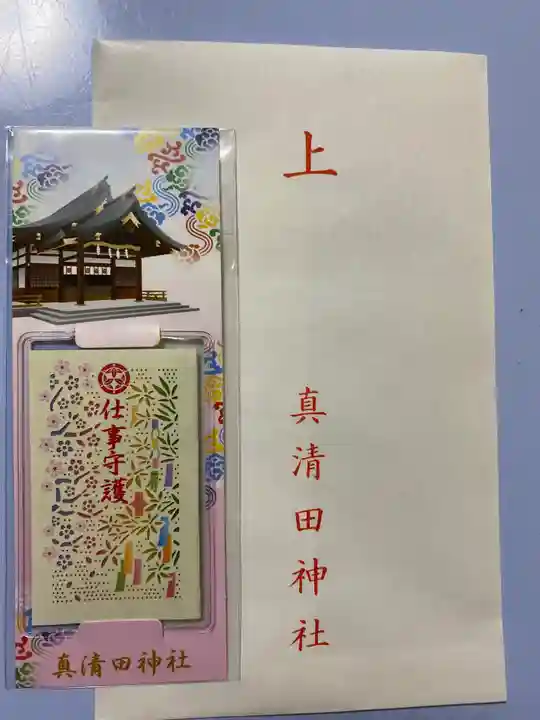 上
真清田神社
仕事守護
真清田神社